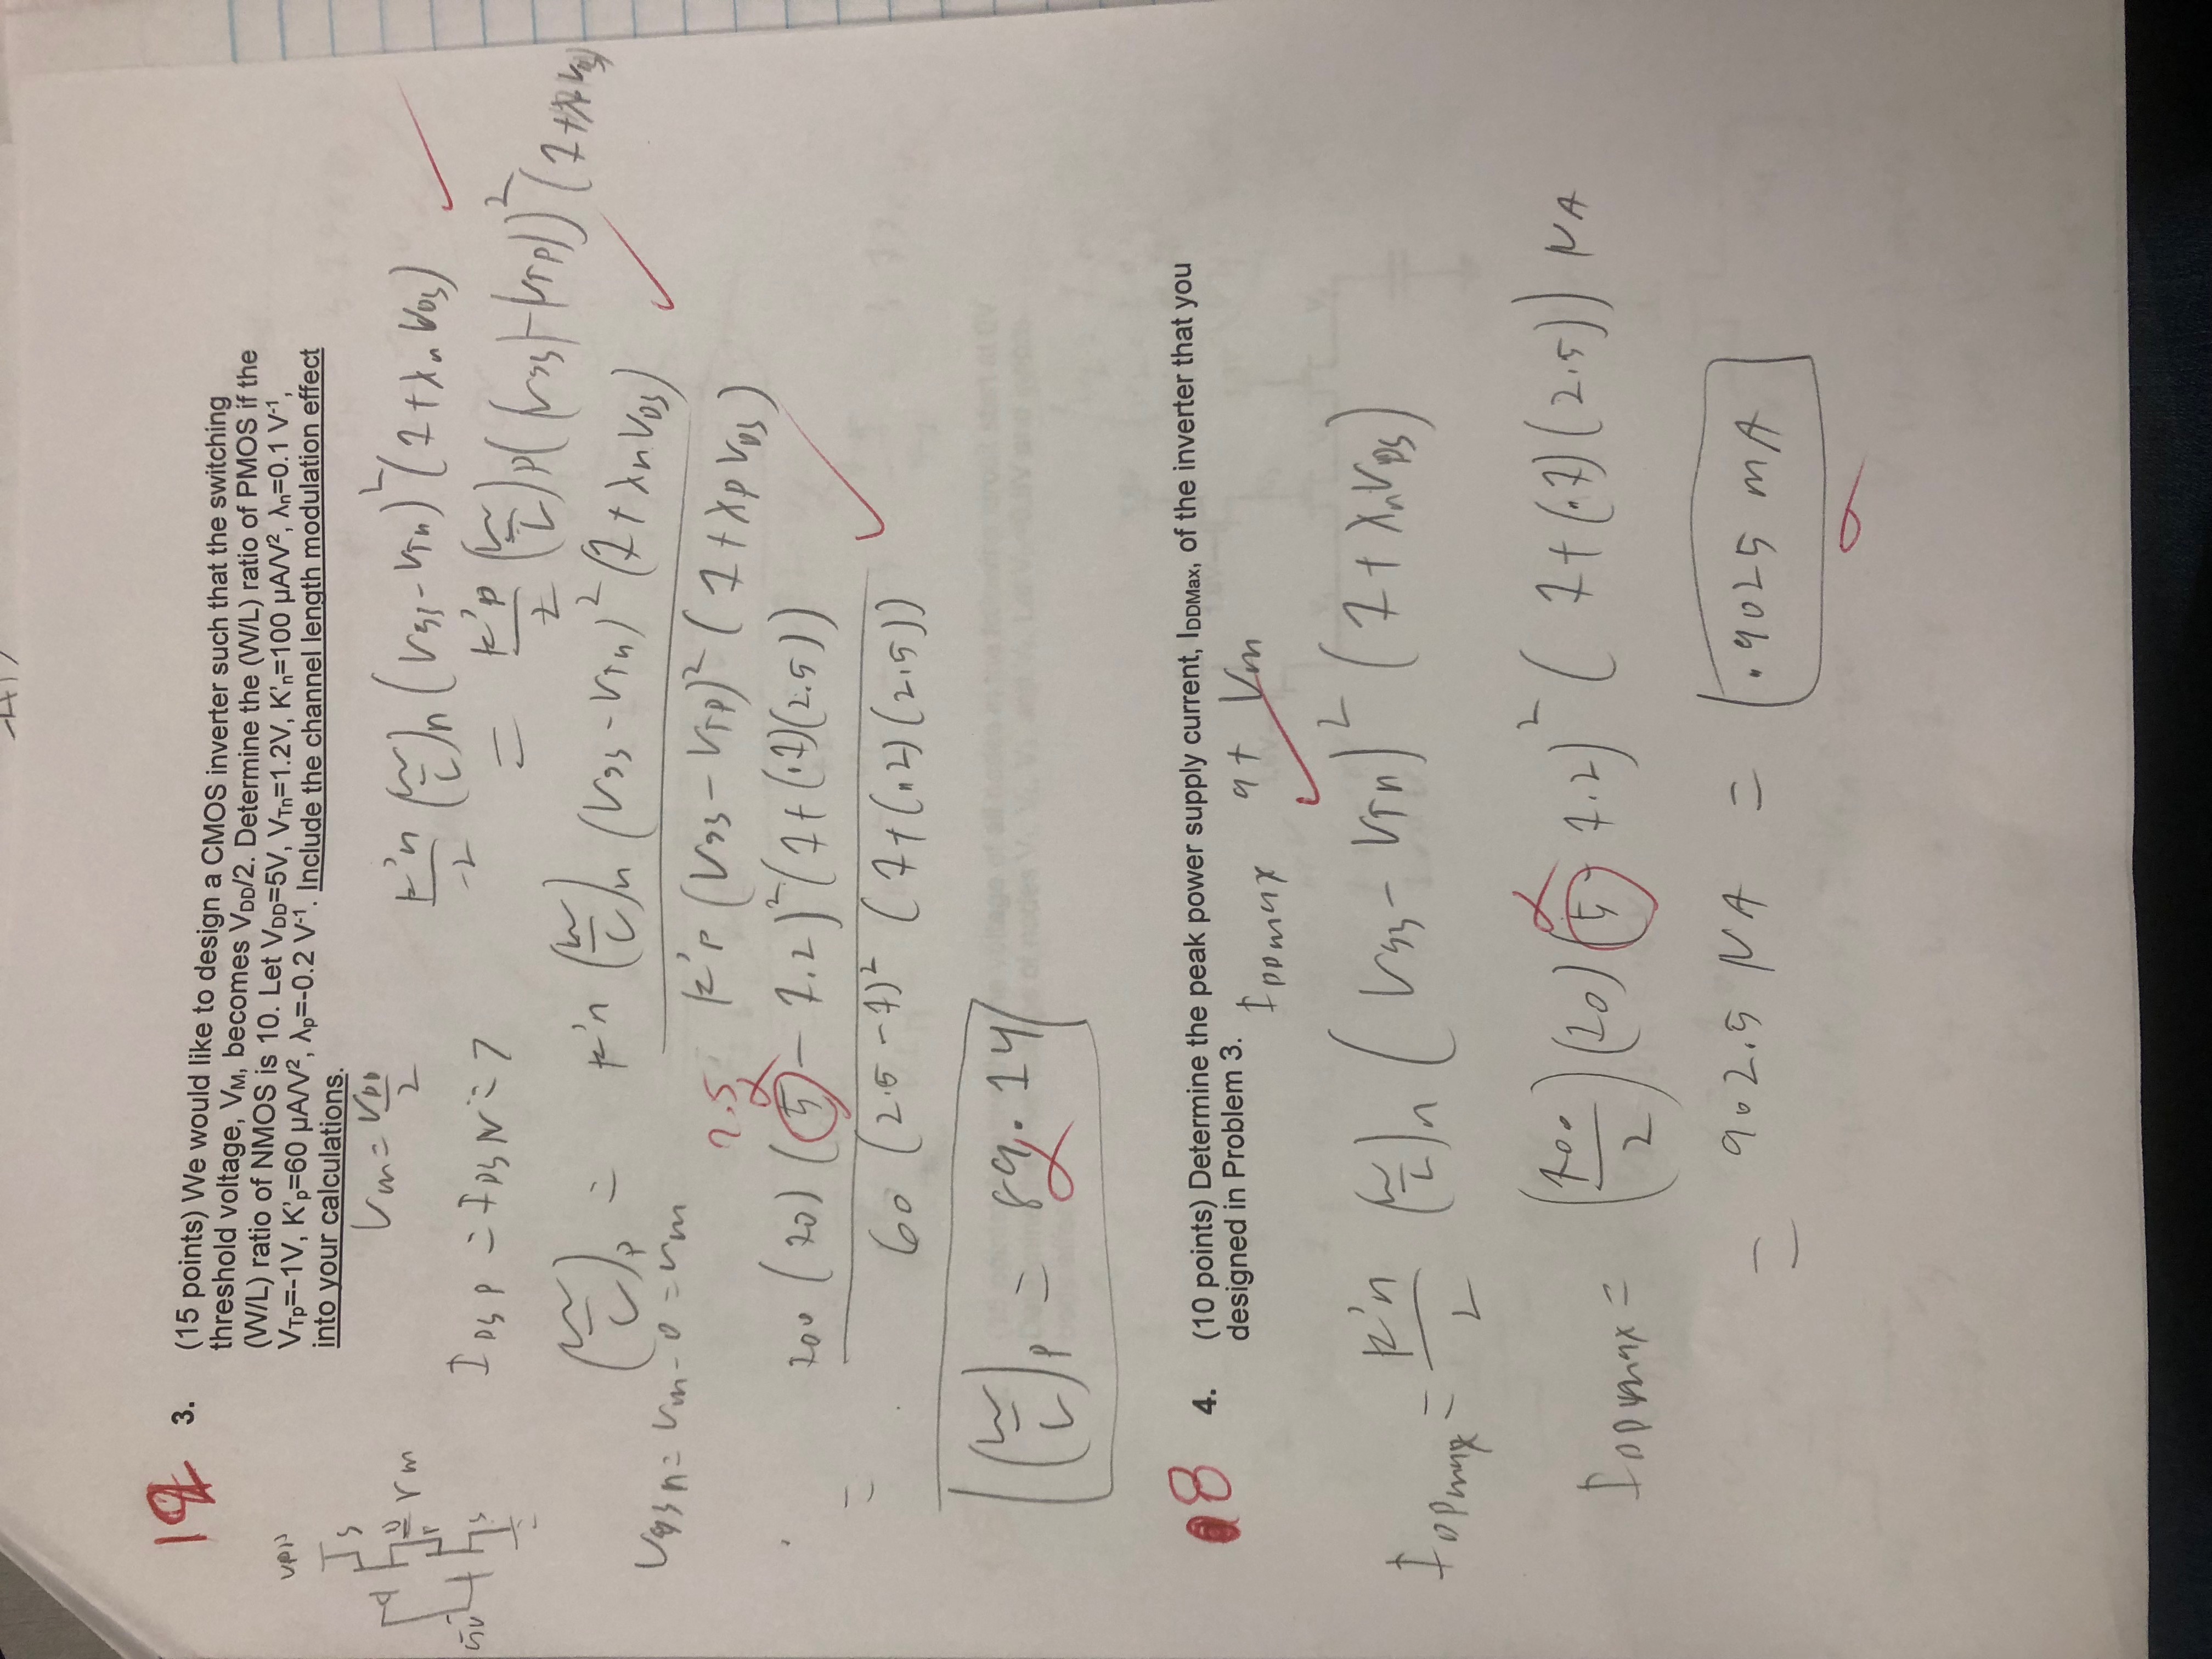 12 3. (15 points) We would like to design a CMOS inverter such that the switching
threshold voltage, VM, becomes VDD/2. Determine the (W/L) ratio of PMOS if the
(W/L) ratio of NMOS is 10. Let VDD=5V, VTn=1.2V, K'n=100 µA/V², λn=0.1 V-1,
VTp=-1V, K'p=60 µA/V², λp=-0.2 V-1. Include the channel length modulation effect
into your calculations.
VDD
S
D
Vm
5V
S
Vm = VDD/2
K'n/2 (W/L)n (VGS - VTn)² (1 + λn VDS)
IDSP = IDSN =>
= K'p/2 (W/L)p (|VGS| - |VTp|)² (1 + λp VDS)
(W/L)p = K'n (W/L)n (VGS - VTn)² (1 + λn VDS)
VGSn = Vm - 0 = Vm
K'p (VGS - VTp)² (1 + λp VDS)
2.5
= 100 (10) (5 - 1.2)² (1 + (.1)(2.5))
60 (2.5 - 1)² (1 + (.2)(2.5))
(W/L)p = 89.14
8 4. (10 points) Determine the peak power supply current, IDDMax, of the inverter that you
designed in Problem 3.
IDDmax at Vm
IDDmax = K'n/2 (W/L)n (VGS - VTn)² (1 + λn VDS)
IDDmax = (100/2) (10) (5 - 1.2)² (1 + (.1)(2.5)) µA
= 902.5 µA = .9025 mA